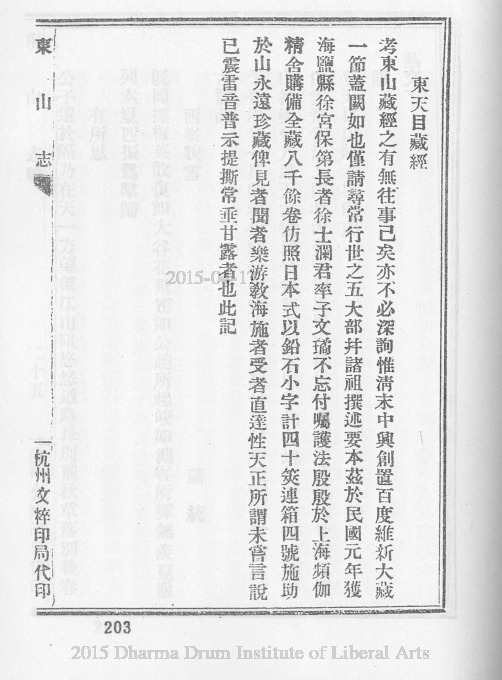 東天目藏經
考東山藏經之有無往事已矣亦不必深詢惟淸末中興創置百度維新大藏
一節蓋闕如也僅請尋常行世之五大部幷諸祖撰述要本茲於民國元年獲
海鹽縣徐宮保第長者徐士瀾君率子文璚不忘付囑護法殷殷於上海頻伽
精舍購備全藏八千餘卷仿照日本式以鉛石小字計四十筴連箱四號施助
於山永遠珍藏俾見者聞者樂游敎海施者受者直達性天正所謂未嘗言說
已震雷音普示提撕常垂甘露者也此記
東山志
杭州文粹印局代印
203
2015 Dharma Drum Institute of Liberal Arts